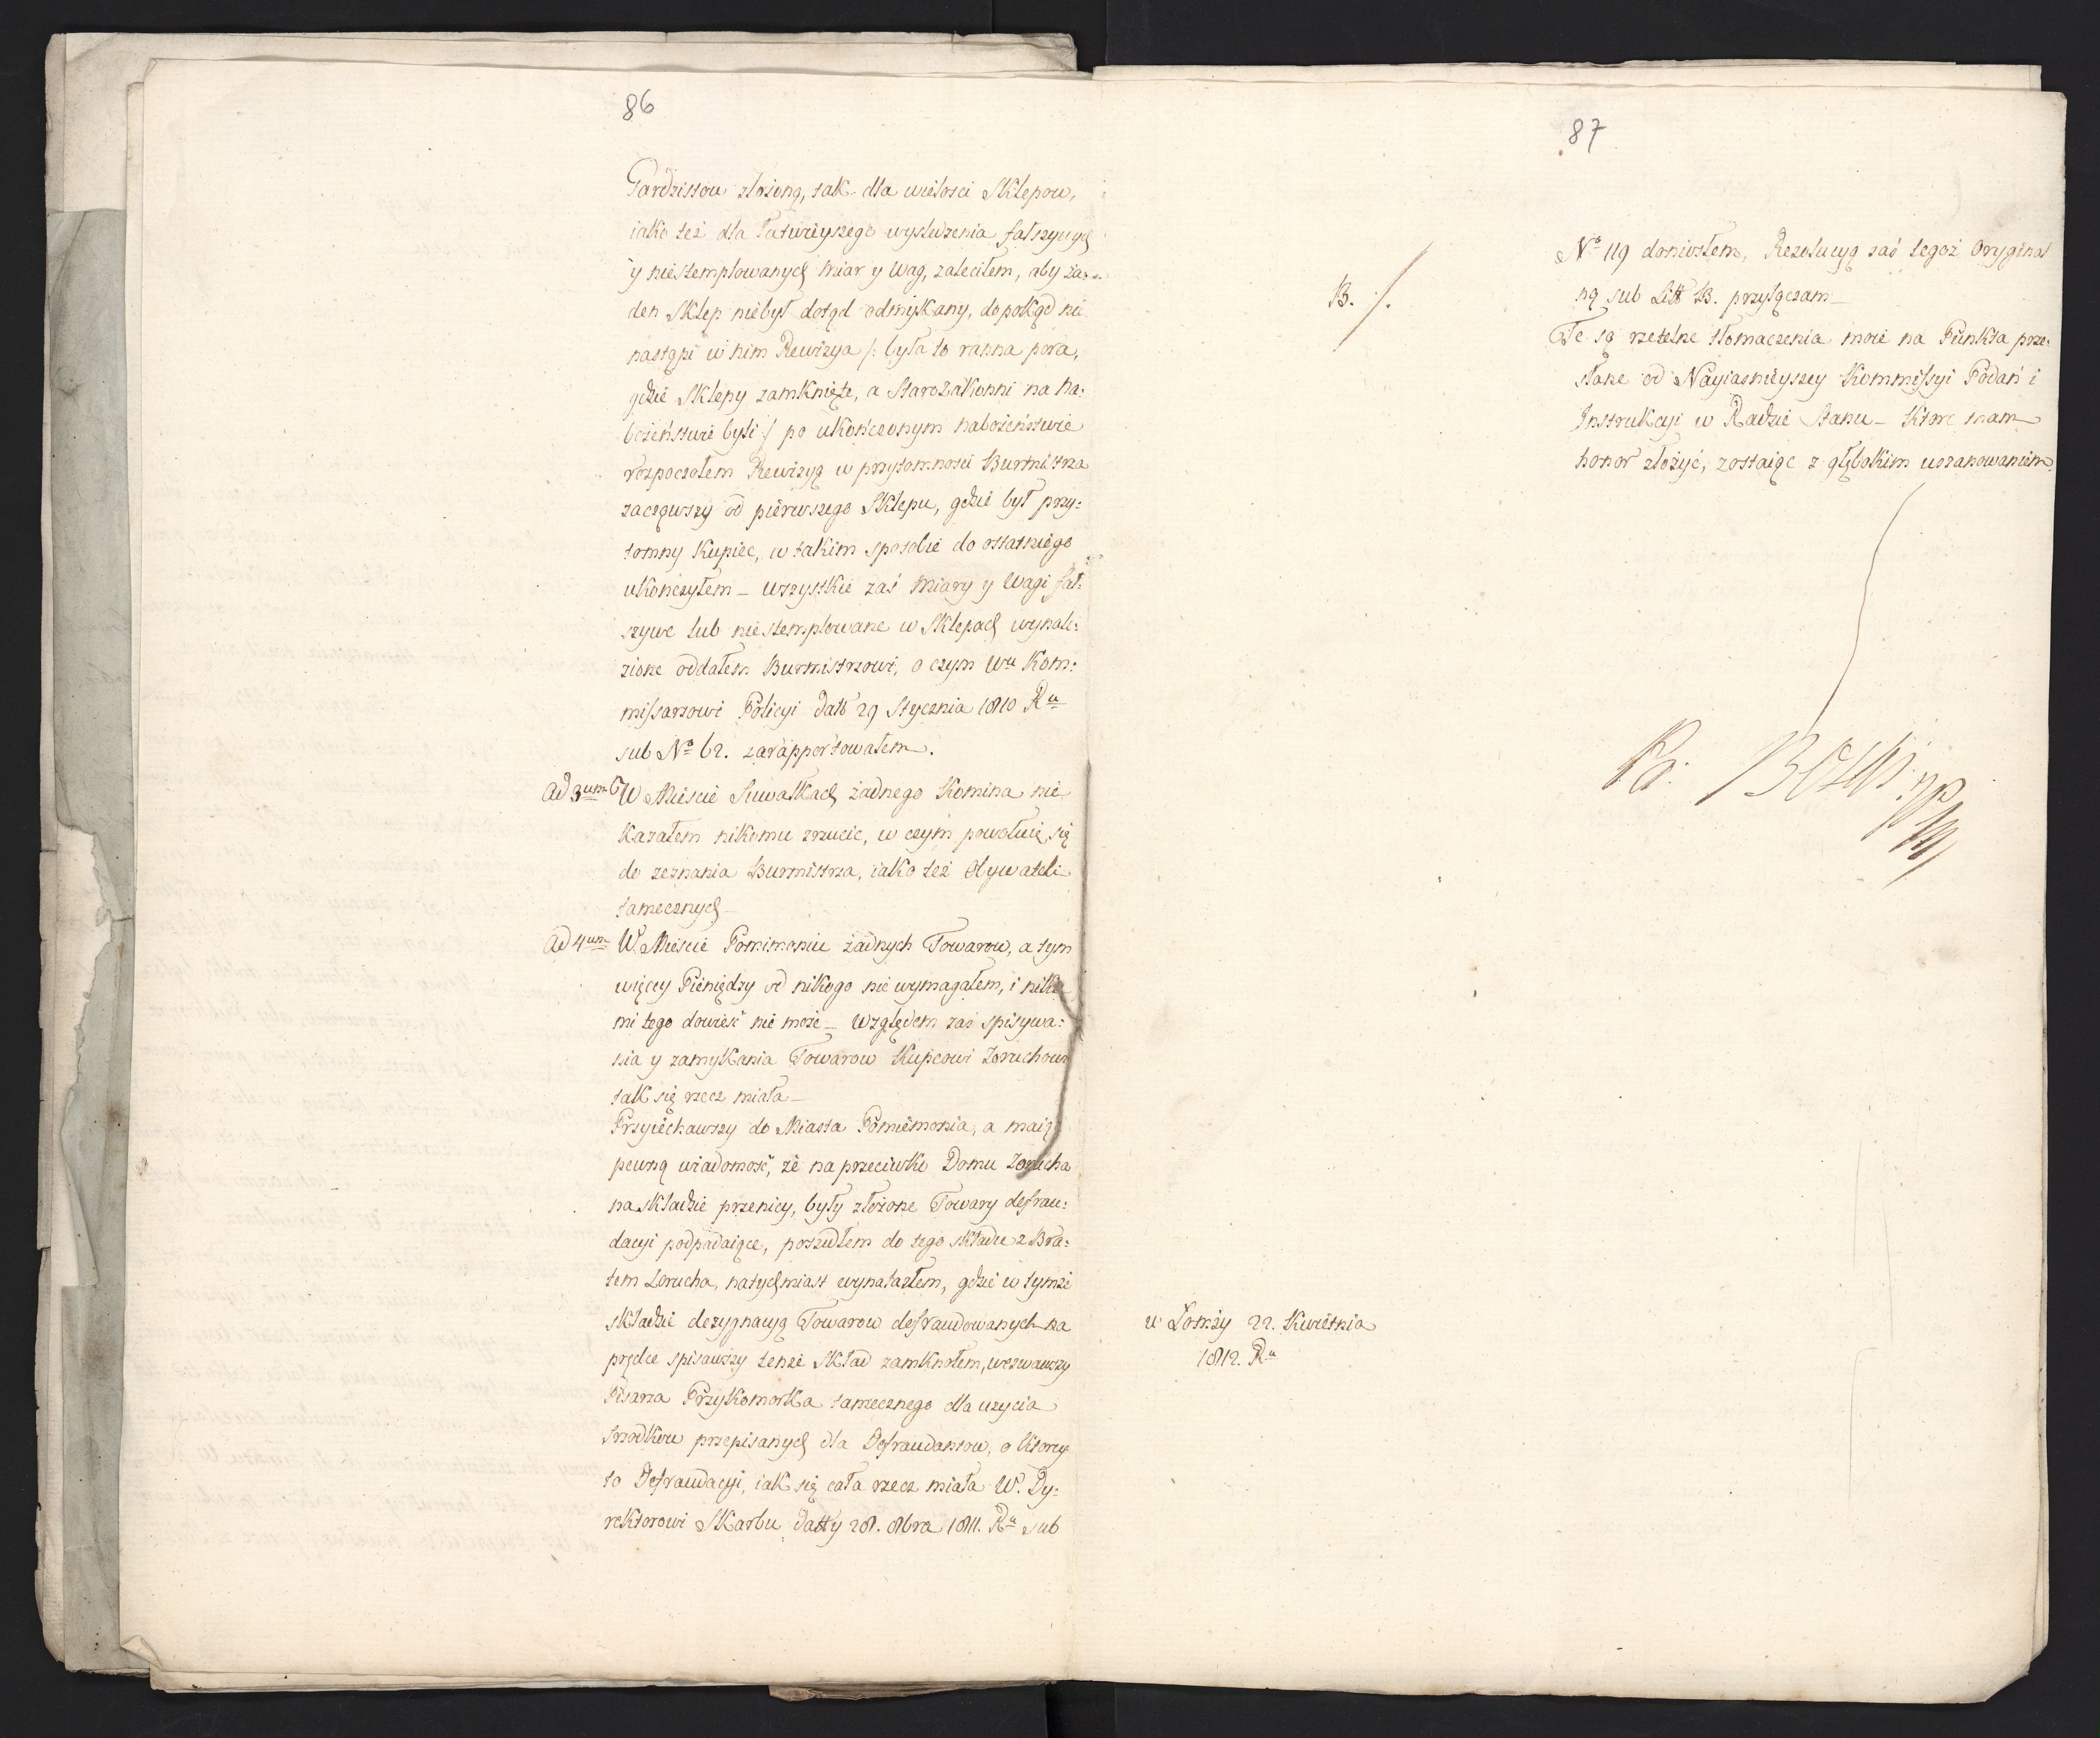 86
Pardzissow złożoną, tak dla wielosci Sklepow,
iako też dla łatwieyszego wysledzenia fałszywych
y niestemplowanych miar y wag, zaleciłem, aby ża:
den Sklep niebył dotąd odmykany, dopokąd nie
nastąpi w nim Rewizya /: była to ranna pora,
gdzie Sklepy zamknięte, a Starozakonni na na:
bożeństwie byli :/ po ukończonym nabożeństwie
rozpoczołem Rewizyą w przytomnosci Burmistrza
zacząwszy od pierwszego Sklepu, gdzie był przy:
tomny Kupiec, w takim sposobie do ostatniego
ukończyłem – wszystkie zaś miary y Wagi fał:
szywe lub niestemplowane w Sklepach wynale:
zione oddałem Burmistrzowi, o czym Wu Kom:
missarzowi Policyi datt 29 Stycznia 1810 Ru
sub No 62. zarapportowałem.
Ad 3um W Miescie Suwałkach żadnego Komina nie
kazałem nikomu zrzucic, w czym powołuię się
do zeznania Burmistrza, iako też Obywateli
tamecznych –
Ad 4um W Miescie Pomimoniu żadnych Towarow, a tym
więcey Pieniędzy od nikogo nie wymagałem, i nikt
mi tego dowieść nie może – Względem zaś spisywa:
nia y zamykania Towarow Kupcowi Zoruchowi
tak się rzecz miała –
Przyiechawszy do Miasta Pomiemonia, a maiąc
pewną wiadomość, że naprzeciwko Domu Zorucha
na składzie pszenicy, były złożone Towary defrau:
dacyi podpadaiące, poszedłem do tego składu z Bra:
tem Zorucha, natychmiast wynalazłem, gdzie w tymże
składzie dezygnacyą Towarow defraudowanych na
prędce spisawszy tenże Skład zamknołem, wezwawszy
Pisarza Przykomorka tamecznego dla użycia
srzodkow przepisanych dla Defraudantow, o ktorey
to Defraudacyi, iak się cała rzecz miała W. Dy:
rektorowi Skarbu datty 28. 8bra 1811. Ru sub
87
B. ./.
No 119 doniosłem, Rezolucyą zaś tegoż Oryginal
ną sub Litt B. przyłączam –
Te są rzetelne tłomaczenia moie na Punkta prze:
słane od Nayiasnieyszey Kommissyi Podań i
Instrukcyi w Radzie Stanu – Ktore mam
honor złożyć, zostaiąc z głębokim uszanowaniem
w Łomży 22. Kwietnia
1812. Ru